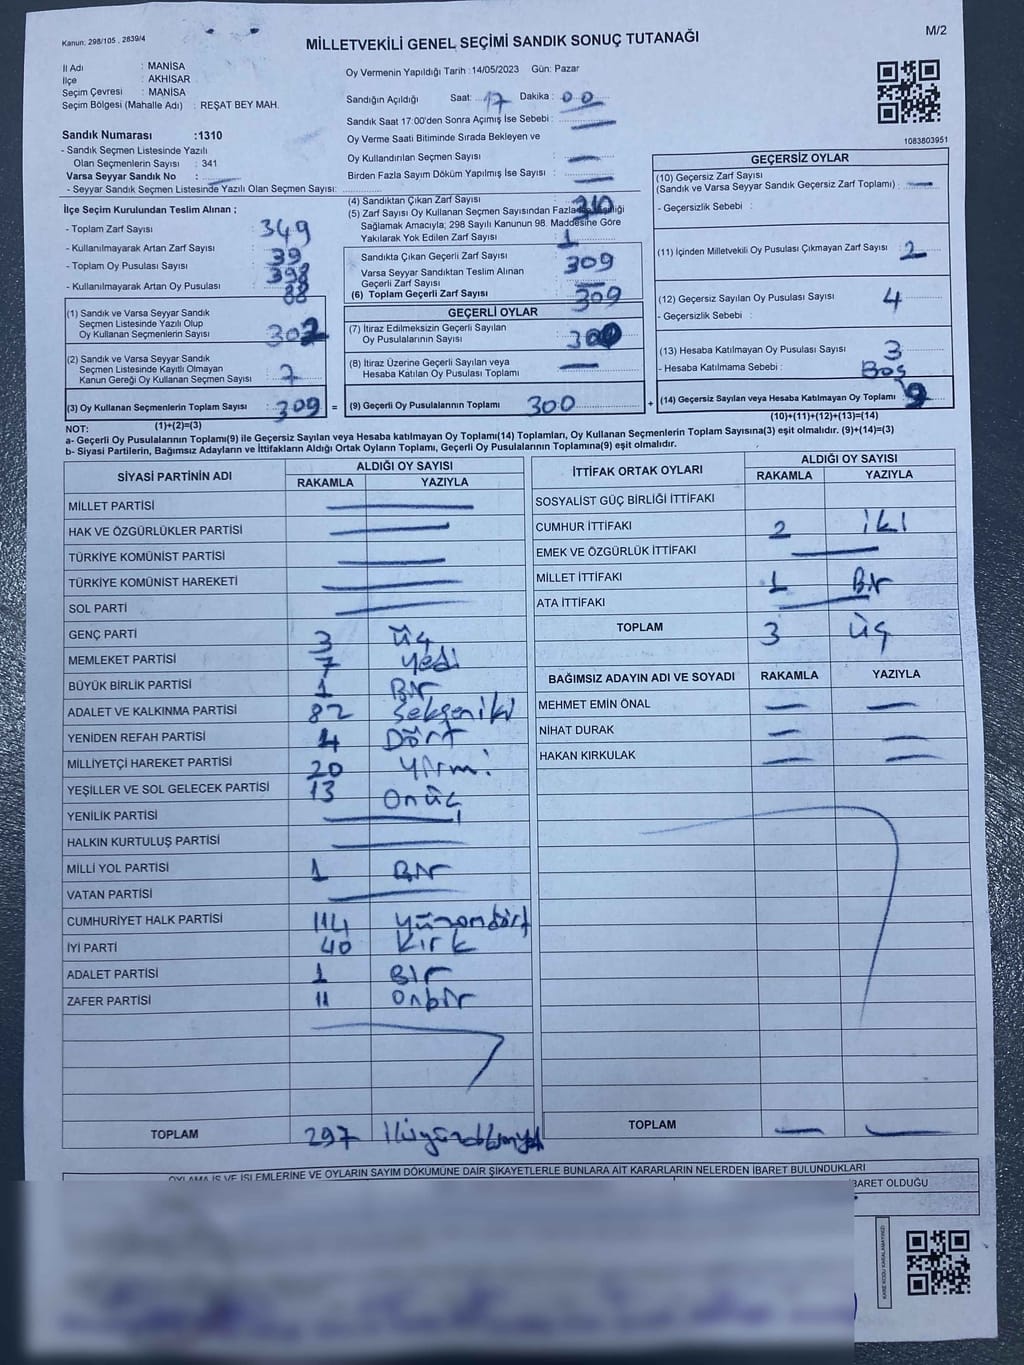 Kanun: 298/105 , 2839/4
MİLLETVEKİLİ GENEL SEÇİMİ SANDIK SONUÇ TUTANAĞI
M/2
İl Adı : MANİSA
İlçe : AKHİSAR
Seçim Çevresi : MANİSA
Seçim Bölgesi (Mahalle Adı) : REŞAT BEY MAH.
Sandık Numarası :1310
- Sandık Seçmen Listesinde Yazılı
Olan Seçmenlerin Sayısı : 341
Varsa Seyyar Sandık No :
- Seyyar Sandık Seçmen Listesinde Yazılı Olan Seçmen Sayısı:
Oy Vermenin Yapıldığı Tarih :14/05/2023 Gün: Pazar
Sandığın Açıldığı Saat: 17 Dakika : 00
Sandık Saat 17:00'den Sonra Açımış İse Sebebi :
Oy Verme Saati Bitiminde Sırada Bekleyen ve
Oy Kullandırılan Seçmen Sayısı :
Birden Fazla Sayım Döküm Yapılmış İse Sayısı :
1083803951
İlçe Seçim Kurulundan Teslim Alınan ;
- Toplam Zarf Sayısı : 349
- Kullanılmayarak Artan Zarf Sayısı : 39
- Toplam Oy Pusulası Sayısı : 398
- Kullanılmayarak Artan Oy Pusulası : 88
(1) Sandık ve Varsa Seyyar Sandık
Seçmen Listesinde Yazılı Olup
Oy Kullanan Seçmenlerin Sayısı : 302
(2) Sandık ve Varsa Seyyar Sandık
Seçmen Listesinde Kayıtlı Olmayan
Kanun Gereği Oy Kullanan Seçmen Sayısı : 7
(3) Oy Kullanan Seçmenlerin Toplam Sayısı : 309
(1)+(2)=(3)
(4) Sandıktan Çıkan Zarf Sayısı : 310
(5) Zarf Sayısı Oy Kullanan Seçmen Sayısından Fazla
Sağlamak Amacıyla; 298 Sayılı Kanunun 98. Maddesine Göre
Yakılarak Yok Edilen Zarf Sayısı : 1
Sandıkta Çıkan Geçerli Zarf Sayısı : 309
Varsa Seyyar Sandıktan Teslim Alınan
Geçerli Zarf Sayısı :
(6) Toplam Geçerli Zarf Sayısı : 309
GEÇERLİ OYLAR
(7) İtiraz Edilmeksizin Geçerli Sayılan
Oy Pusulalarının Sayısı : 300
(8) İtiraz Üzerine Geçerli Sayılan veya
Hesaba Katılan Oy Pusulası Toplamı :
= (9) Geçerli Oy Pusulalarının Toplamı : 300
GEÇERSİZ OYLAR
(10) Geçersiz Zarf Sayısı
(Sandık ve Varsa Seyyar Sandık Geçersiz Zarf Toplamı) :
- Geçersizlik Sebebi :
(11) İçinden Milletvekili Oy Pusulası Çıkmayan Zarf Sayısı : 2
(12) Geçersiz Sayılan Oy Pusulası Sayısı : 4
- Geçersizlik Sebebi :
(13) Hesaba Katılmayan Oy Pusulası Sayısı : 3
- Hesaba Katılmama Sebebi : Boş
+ (14) Geçersiz Sayılan veya Hesaba Katılmayan Oy Toplamı : 9
(10)+(11)+(12)+(13)=(14)
NOT:
a- Geçerli Oy Pusulalarının Toplamı(9) ile Geçersiz Sayılan veya Hesaba katılmayan Oy Toplamı(14) Toplamları, Oy Kullanan Seçmenlerin Toplam Sayısına(3) eşit olmalıdır. (9)+(14)=(3)
b- Siyasi Partilerin, Bağımsız Adayların ve İttifakların Aldığı Ortak Oyların Toplamı, Geçerli Oy Pusulalarının Toplamına(9) eşit olmalıdır.
SİYASİ PARTİNİN ADI ALDIĞI OY SAYISI
RAKAMLA YAZIYLA
MİLLET PARTİSİ
HAK VE ÖZGÜRLÜKLER PARTİSİ
TÜRKİYE KOMÜNİST PARTİSİ
TÜRKİYE KOMÜNİST HAREKETİ
SOL PARTİ
GENÇ PARTİ 3 üç
MEMLEKET PARTİSİ 7 yedi
BÜYÜK BİRLİK PARTİSİ 1 Bir
ADALET VE KALKINMA PARTİSİ 82 Seksen iki
YENİDEN REFAH PARTİSİ 4 Dört
MİLLİYETÇİ HAREKET PARTİSİ 20 Yirmi
YEŞİLLER VE SOL GELECEK PARTİSİ 13 Onüç
YENİLİK PARTİSİ
HALKIN KURTULUŞ PARTİSİ
MİLLİ YOL PARTİSİ 1 Bir
VATAN PARTİSİ
CUMHURİYET HALK PARTİSİ 114 Yüzondört
İYİ PARTİ 40 Kırk
ADALET PARTİSİ 1 Bir
ZAFER PARTİSİ 11 Onbir
TOPLAM 297
İTTİFAK ORTAK OYLARI ALDIĞI OY SAYISI
RAKAMLA YAZIYLA
SOSYALİST GÜÇ BİRLİĞİ İTTİFAKI
CUMHUR İTTİFAKI 2 iki
EMEK VE ÖZGÜRLÜK İTTİFAKI
MİLLET İTTİFAKI 1 Bir
ATA İTTİFAKI
TOPLAM 3 üç
BAĞIMSIZ ADAYIN ADI VE SOYADI RAKAMLA YAZIYLA
MEHMET EMİN ÖNAL
NİHAT DURAK
HAKAN KIRKULAK
TOPLAM
OYLAMA İŞ VE İŞLEMLERİNE VE OYLARIN SAYIM DÖKÜMÜNE DAİR ŞİKAYETLERLE BUNLARA AİT KARARLARIN NELERDEN İBARET BULUNDUKLARI
İBARET OLDUĞU